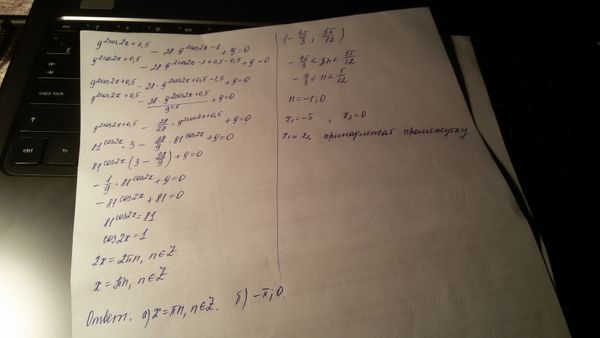 9^{2cos2x+0,5} − 28·9^{2cos2x−1} + 9 = 0
9^{2cos2x+0,5} − 28·9^{2cos2x−1+0,5−0,5} + 9 = 0
9^{2cos2x+0,5} − 28·9^{2cos2x+0,5−1,5} + 9 = 0
9^{2cos2x+0,5} − \frac{28·9^{2cos2x+0,5}}{9^{1,5}} + 9 = 0
9^{2cos2x+0,5} − \frac{28}{27}·9^{2cos2x+0,5} + 9 = 0
81^{cos2x}·3 − \frac{28}{9}·81^{cos2x} + 9 = 0
81^{cos2x}(3 − \frac{28}{9}) + 9 = 0
−\frac{1}{9}·81^{cos2x} + 9 = 0
−81^{cos2x} + 81 = 0
81^{cos2x} = 81
cos2x = 1
2x = 2πn, n∈Z
x = πn, n∈Z
Ответ. а) x = πn, n∈Z. б) −π; 0.
(−\frac{4π}{3}; \frac{5π}{12})
−\frac{4π}{3} < πn < \frac{5π}{12}
−\frac{4}{3} < n < \frac{5}{12}
n = −1; 0.
x₁ = −π, x₂ = 0
x₁ и x₂ принадлежат промежутку
caps lock
shift
fn
ctrl